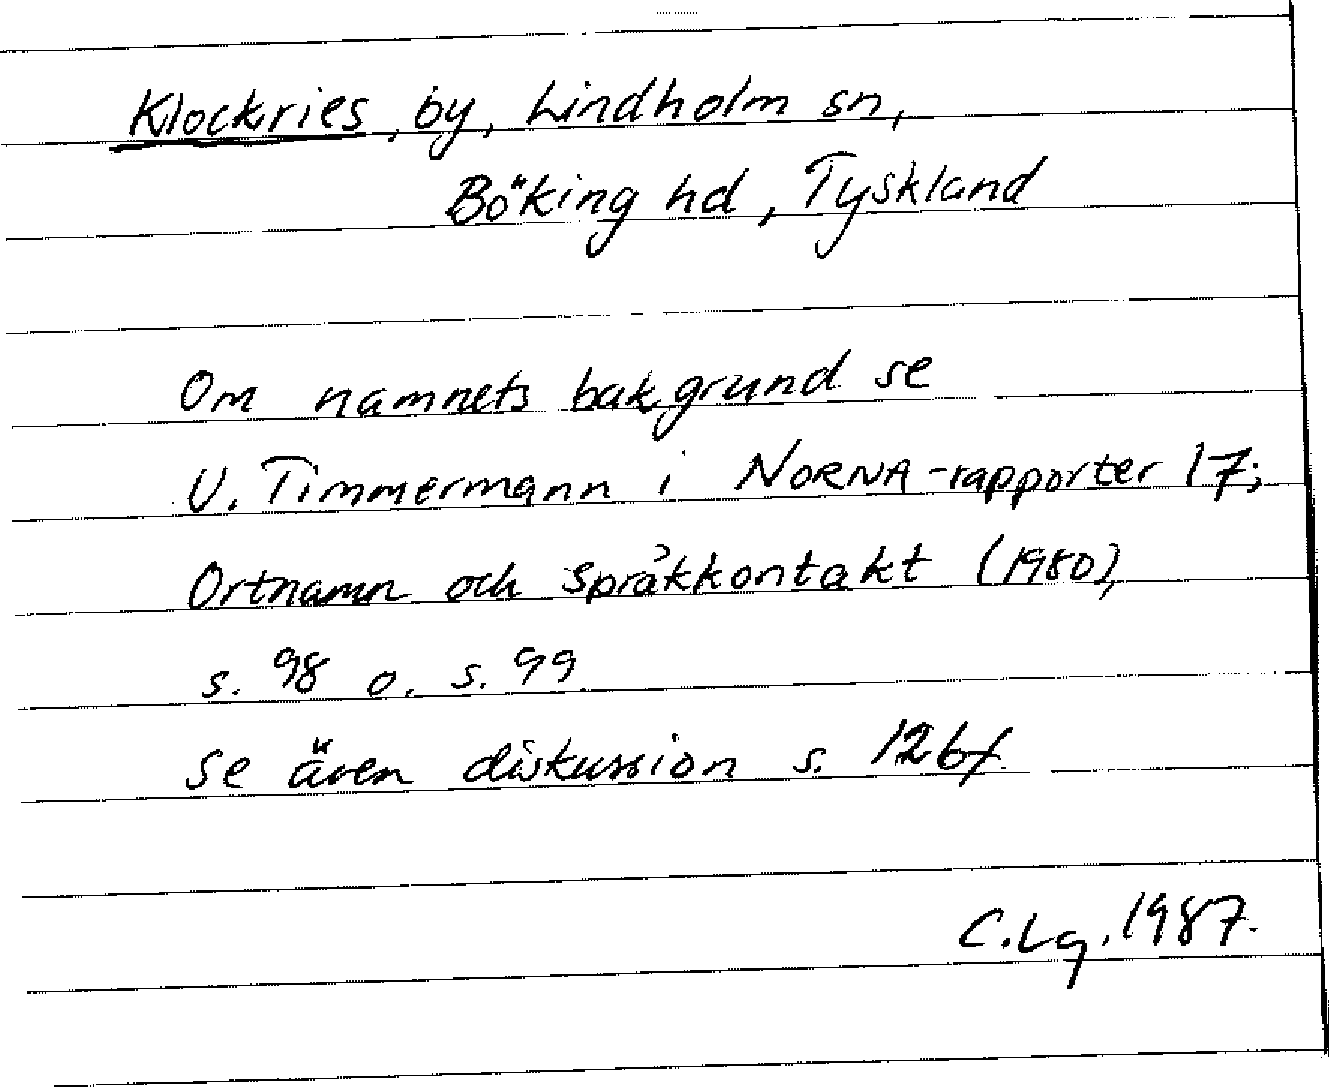 Klockries, by, Lindholm sn,
Böking hd, Tyskland
Om namnets bakgrund se
U. Timmermann i NORNA-rapporter 17;
Ortnamn och språkkontakt (1980),
s. 98 o. s. 99
se även diskussion s. 126f.
C.Lg. 1987.